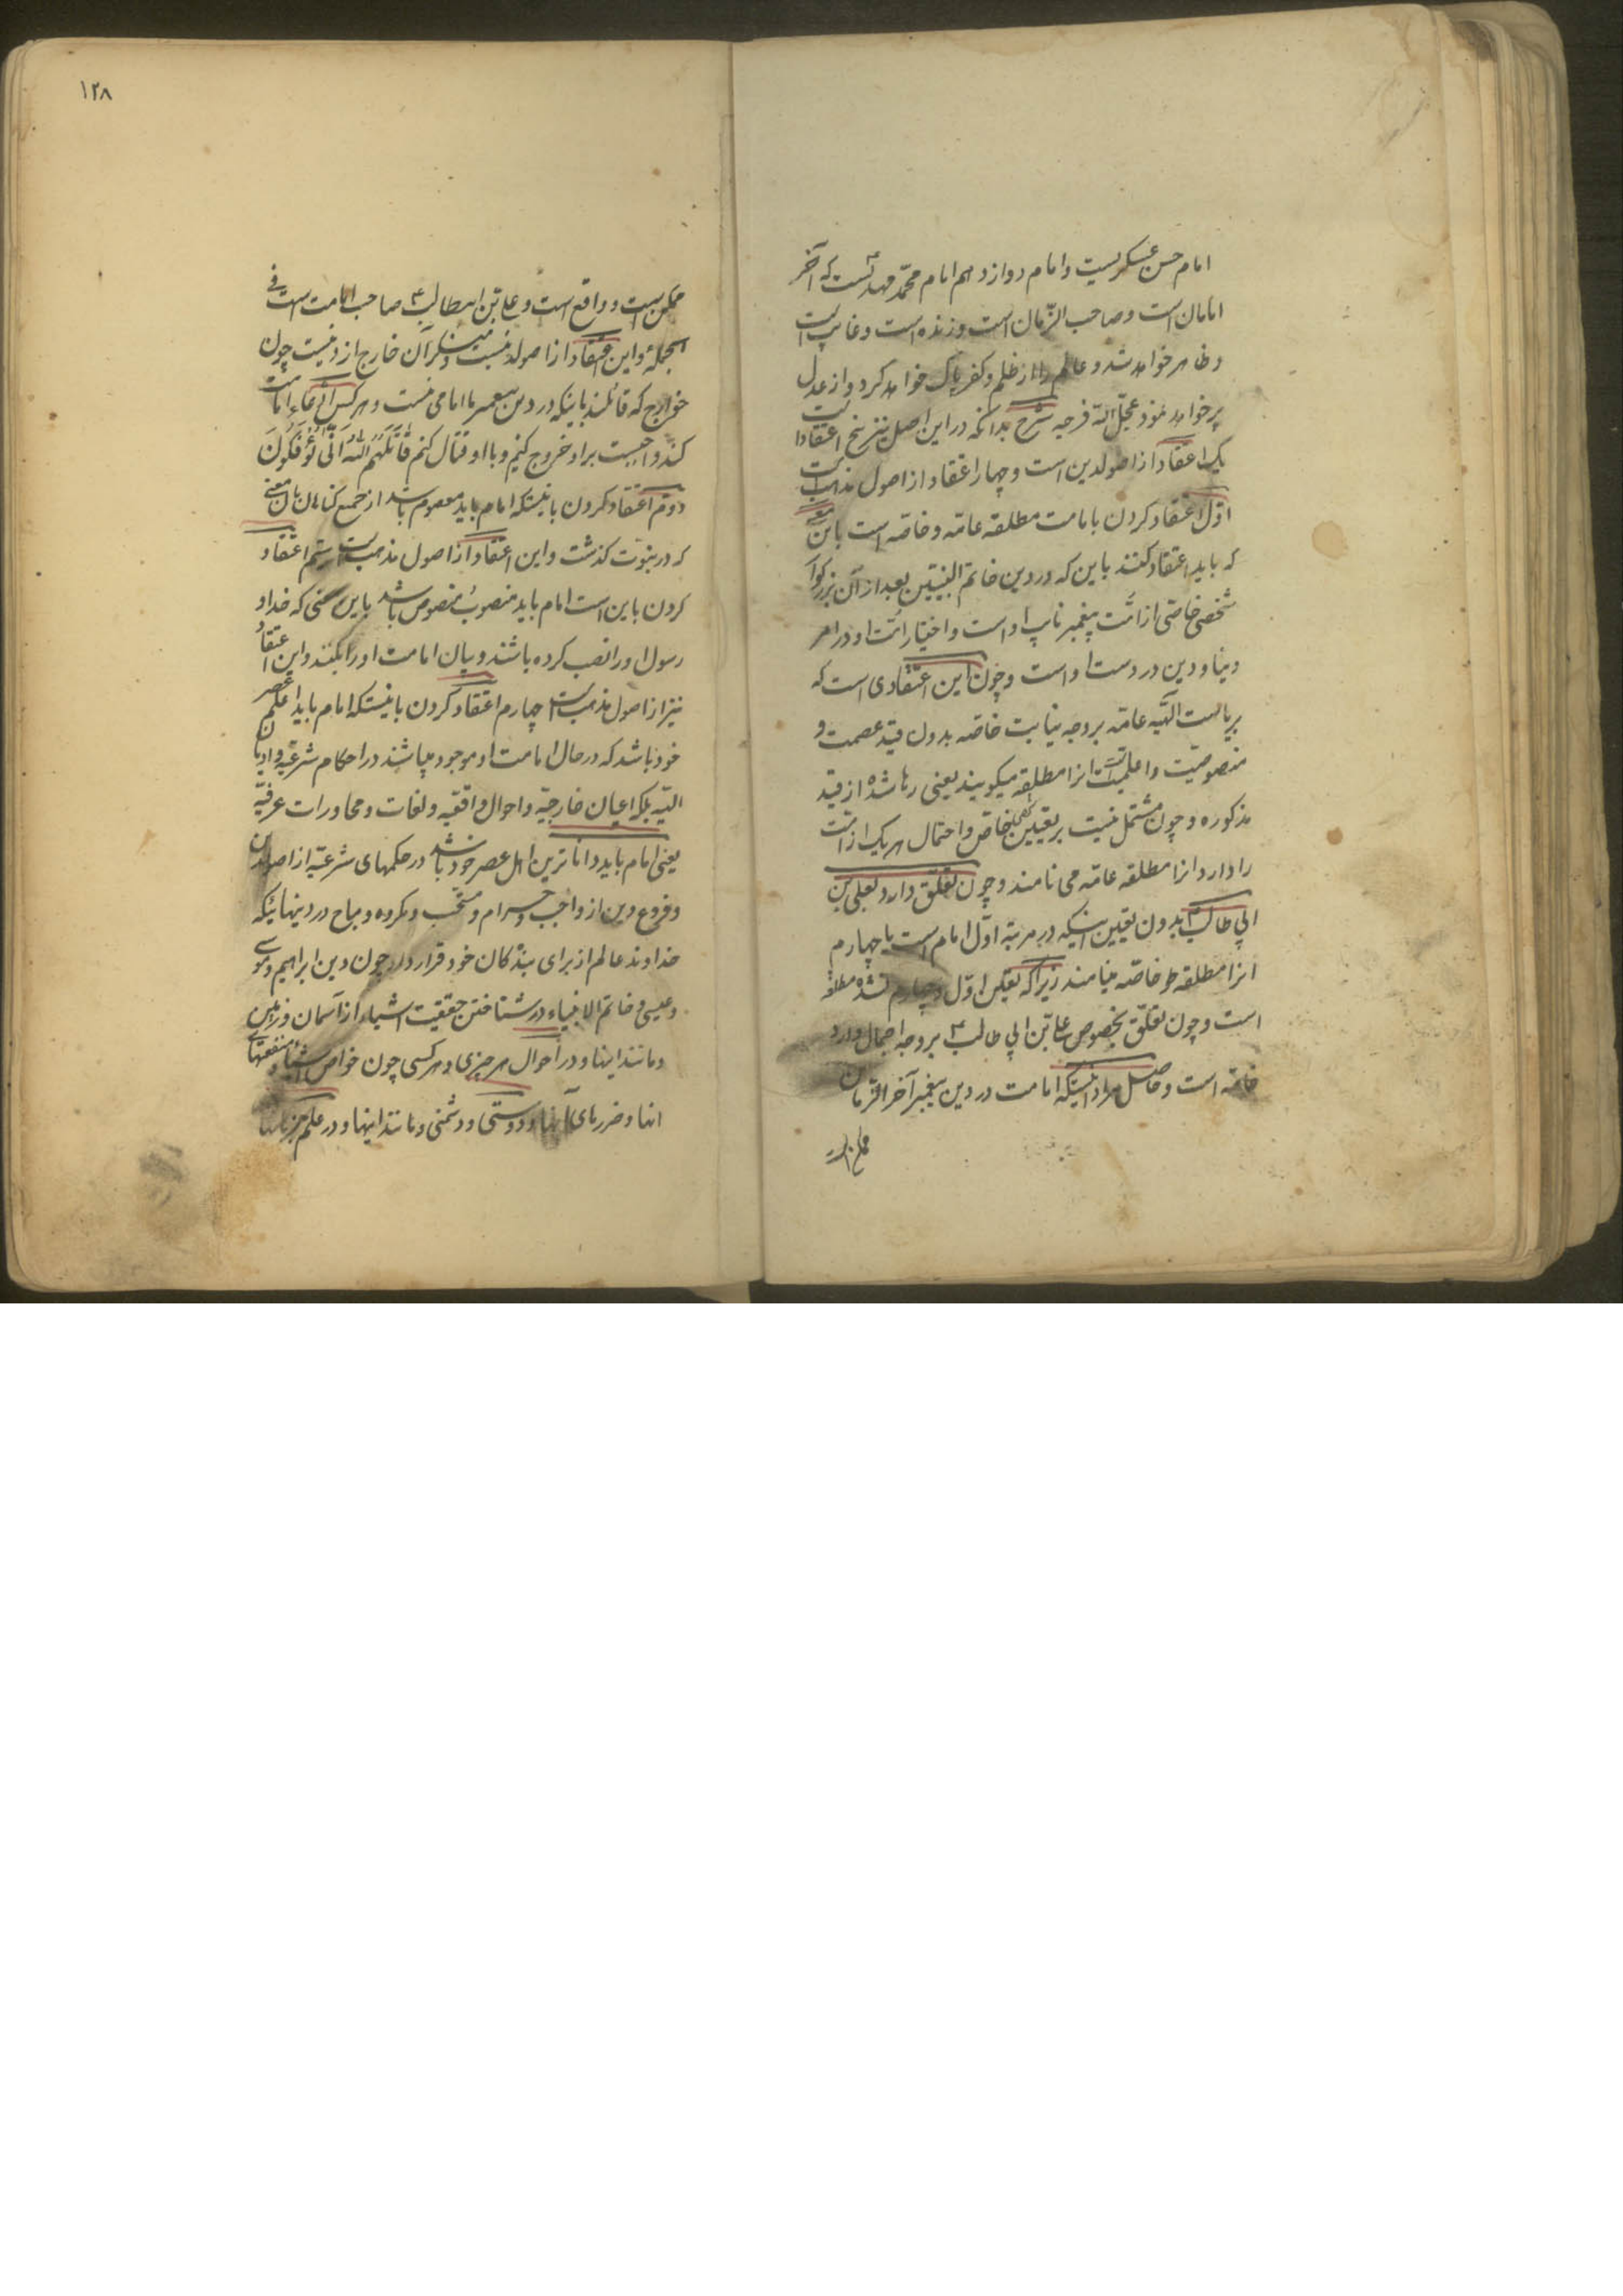 امام حسن عسکریست و امام دوازدهم امام محمّد مهدیست که آخر
امامان است و صاحب الزّمان است و زنده است و غایب است
و ظاهر خواهد شد و عالم را از ظلم و کفر پاک خواهد کرد و از عدل
پر خواهد نمود عجّل الله فرجه شرح بدانکه در این اصل نیز پنج اعتقاد است
یک اعتقاد از اصولدین است و چهار اعتقاد از اصول مذهب است
اوّل اعتقاد کردن بامامت مطلقه عامّه و خاصّه است باین معنی
که باید اعتقاد کنند باین که در دین خاتم النبیّین بعد از آن بزرکوار
شخصی خاصّی از امّت پیغمبر نایب او است و اختیار امّت او در امر
دنیا و دین در دست او است و چون این اعتقادی است که
بریاست الهیّه عامّه بر وجه نیابت خاصّه بدون قید عصمت و
منصوصیّت و اعلمیّت است انرا مطلقه میکویند یعنی رها شده از قید
مذکوره و چون مشتمل نیست بر تعیین شخص خاصّ و احتمال هر یک از امّت
را دارد انرا مطلقه عامّه می نامند و چون تعلّق دارد بعلی بن
ابی طالب ع بدون تعیین اینکه در مرتبه اوّل امام است یا چهارم
انرا مطلقه خاصّه مینامند زیرا که تعیین اوّل و چهارم نشده مطلقه
است و چون تعلّق بخصوص علی بن ابی طالب ع بر وجه اجمال دارد
خاصّه است و حاصل مراد اینکه امامت در دین پیغمبر آخر الزّمان
۱۲۸
ممکن است و واقع است و علی بن ابیطالب ع صاحب امامت است فی
الجمله و این اعتقاد از اصولدین است و منکر آن خارج از دینست چون
خوارج که قائلند باینکه در دین پیغمبر ما امامی نیست و هر کس ادّعاء امامت
کند واجبست بر او خروج کنیم و با او قتال کنیم قَاتَلَهُمُ اللهُ اَنّی یُؤْفَکُونَ
دوّم اعتقاد کردن باینستکه امام باید معصوم باشد از جمیع کناهان بان معنی
که در نبوّت کذشت و این اعتقاد از اصول مذهب است سیّم اعتقاد
کردن باین است امام باید منصوب منصوص باشد باین معنی که خدا و
رسول او را نصب کرده باشند و بیان امامت او را بکنند و این اعتقاد
نیز از اصول مذهب است چهارم اعتقاد کردن باینستکه امام باید اعلم عصر
خود باشد که در حال امامت او موجود میباشند در احکام شرعیّه و ادیان
الهیّه بلکه اعیان خارجیّه و احوال واقعیّه و لغات و محاورات عرفیّه
یعنی امام باید داناترین اهل عصر خود باشد در حکمهای شرعیّه از اصولدین
و فروع دین از واجب و حرام و مستحّب و مکروه و مباح در دینهائیکه
خداوند عالم از برای بندکان خود قرار داده چون دین ابراهیم و موسی
و عیسی و خاتم الانبیاء در شناختن حقیقت اشیاء از آسمان و زمین
و مانند اینها و در احوال هر چیزی و هر کسی چون خواص اشیاء و منفعتهای
انها و ضررهای آنها و دوستی و دشمنی و مانند اینها و در علم بزبانها